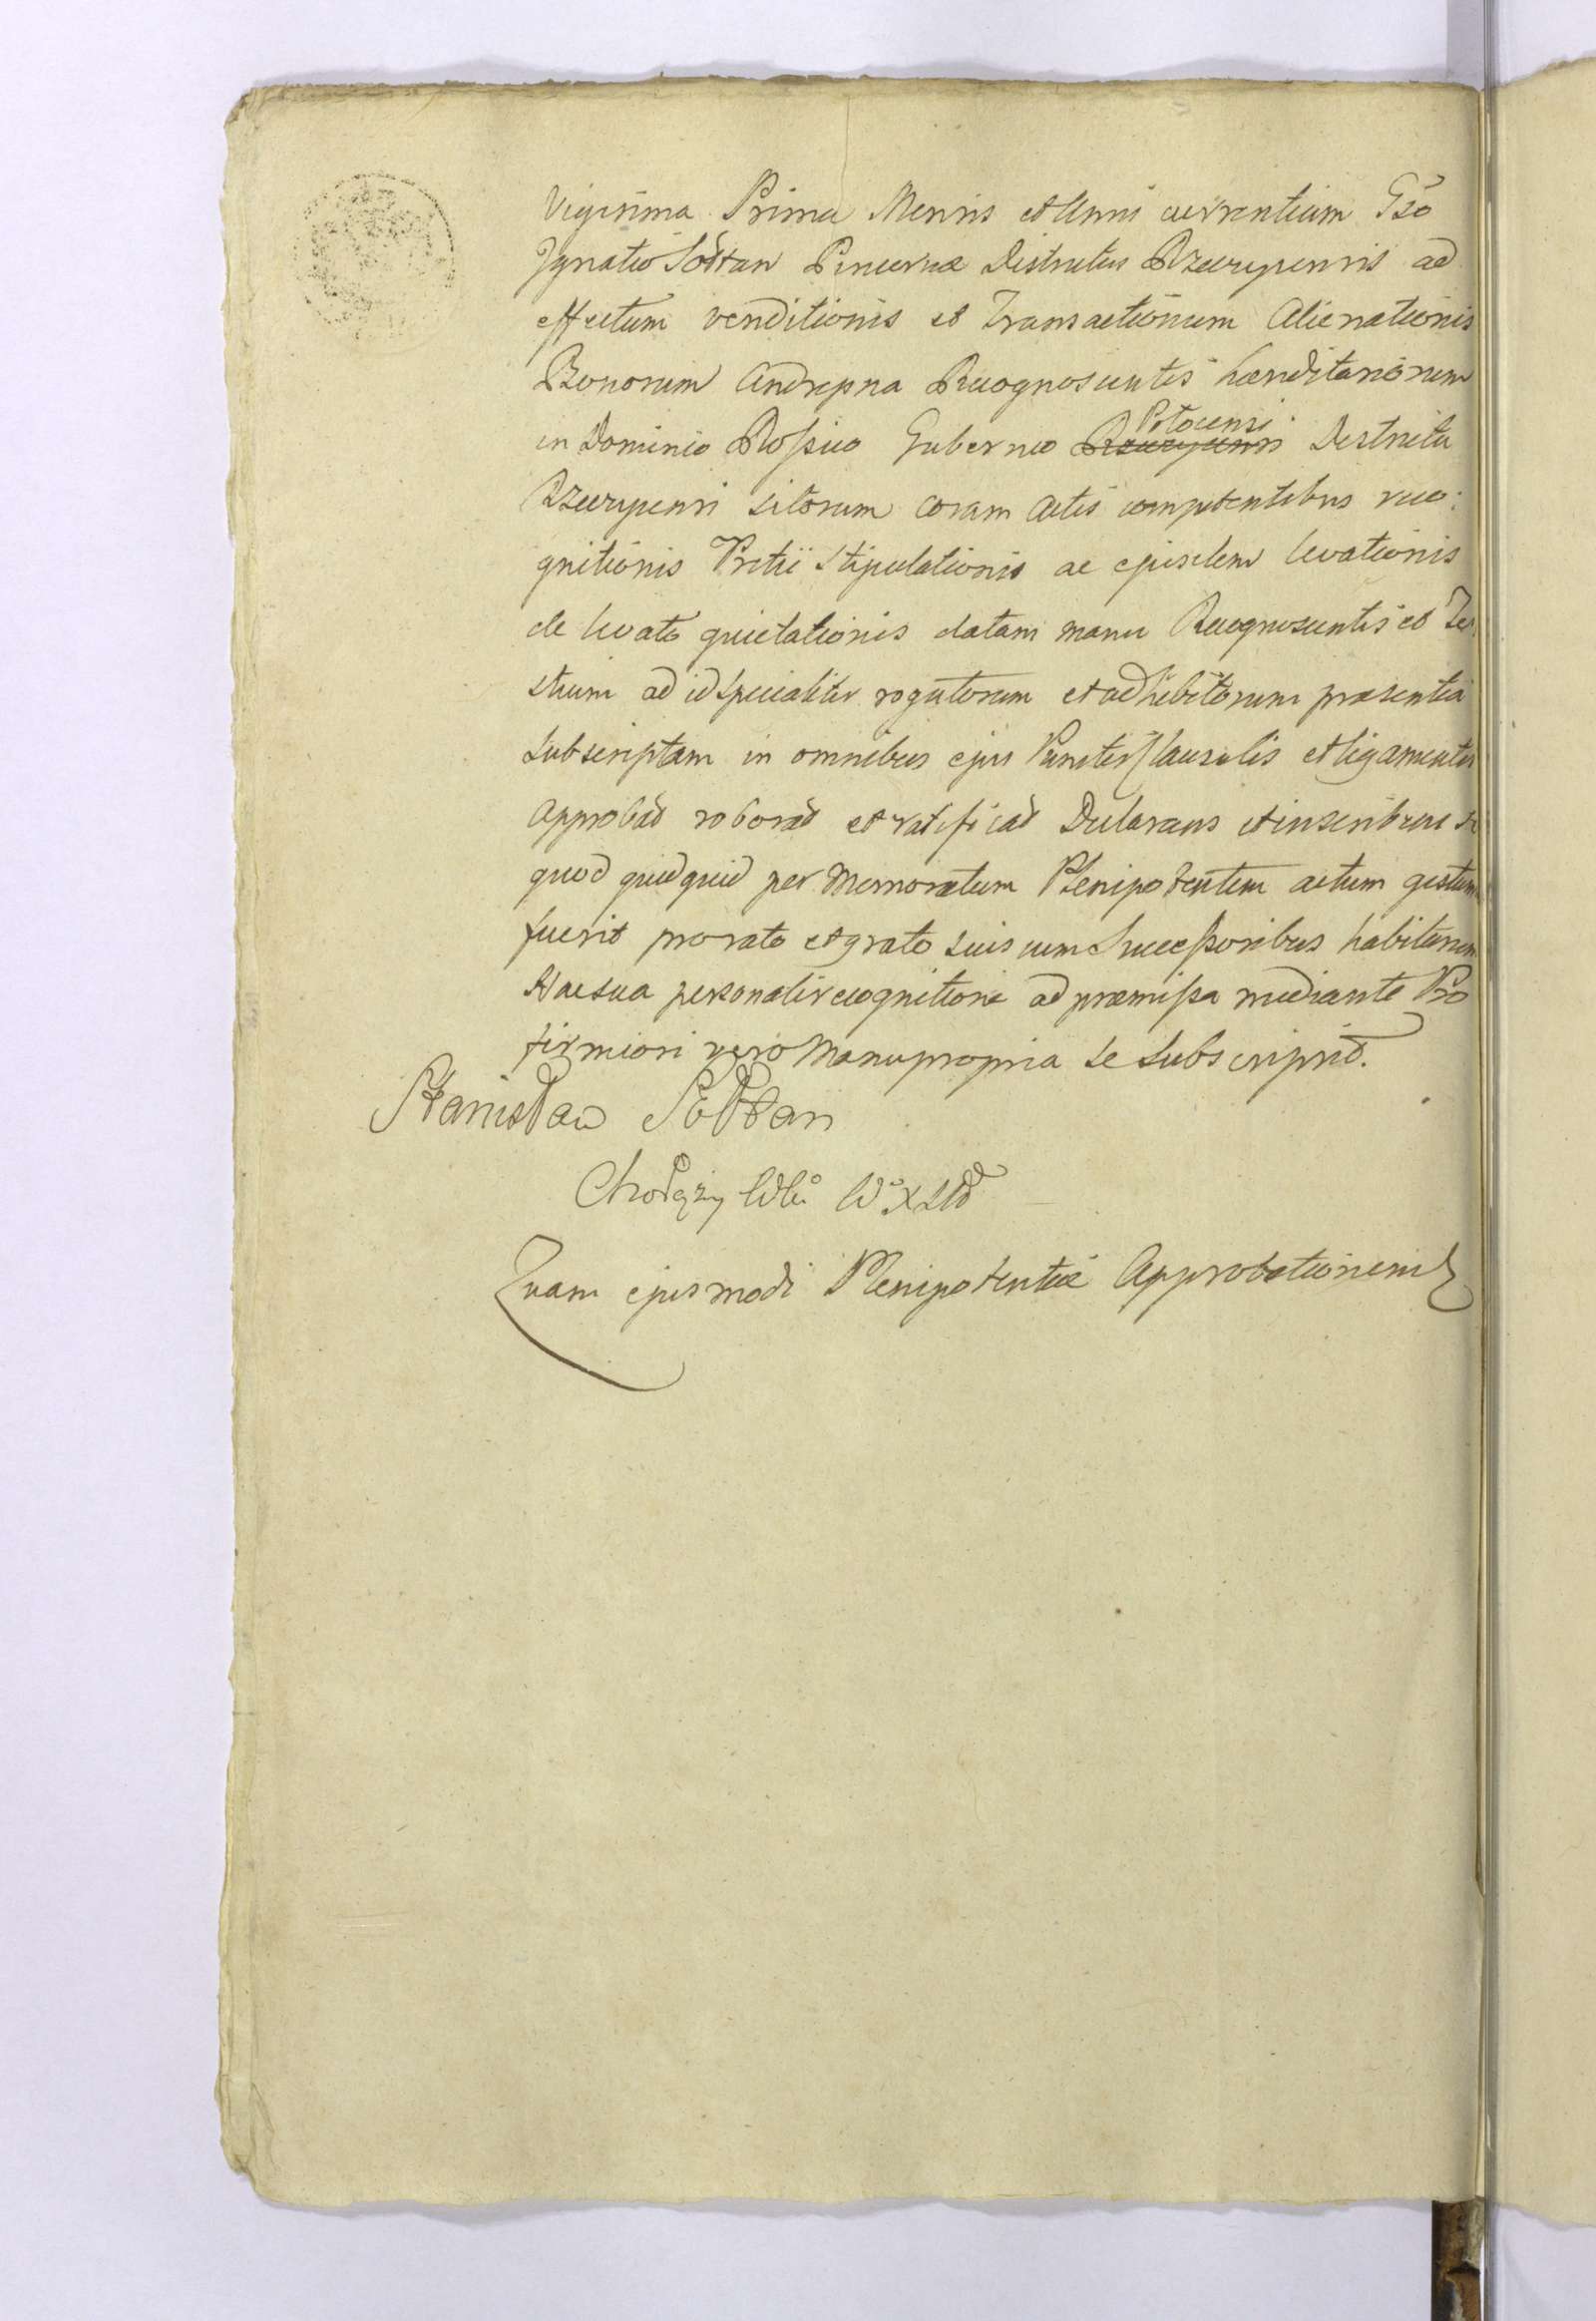 Vigesima Prima Mensis et Anni currentium Gso
Ignatio Sołtan Pincernæ Districtus Rzeczycensis ad
effectum venditionis et Transactionum Alienationis
Bonorum Recognoscentis hæreditariorum
in Dominio Rossico Gubernio Połocensi Districtu
Rzeczycensi sitorum coram Actis competentibus reco:
gnitionis Pretii Stipulationis ac ejusdem levationis
de levato quietationis datam manu Recognoscentis et Tes
tium ad id specialiter rogatorum et adhibitorum præsentia
subscriptam in omnibus ejus Punctis Clausulis et ligamentis
Approbat roborat et ratificat Declarans et inscribens se
quod quidquid per memoratum Plenipotentem actum gestum
fuerit pro rato et grato suis cum Successoribus habiturum
Hac sua personali recognitione ad præmissa mediante Pro
firmiori vero Manu propria se subscripsit.
Stanisław Sołtan
Chorąży Wlki W X Litt
Quam ejusmodi Plenipotentiæ Approbationem